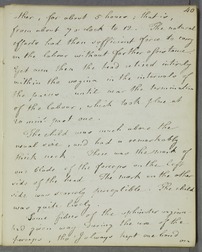 40
this, for about 5 hours, that is,
from about 7 o'clock to 12. The natural
efforts had then sufficient force to carry
on the labour without further assistance.
Yet even then the head receded entirely
within the vagina in the intervals of
the pains until near the termination
of the labour, which took place at
20 minutes past one.
The child was much above the
usual size, and had a remarkably
thick neck. There was the mark of
one blade of the forceps on the left
side of the head. The mark on the other
side was scarcely perceptible. The child
was quite lively.
Some fibres of the sphincter vaginae
had given way during the use of the
forceps, tho' I always kept my hand